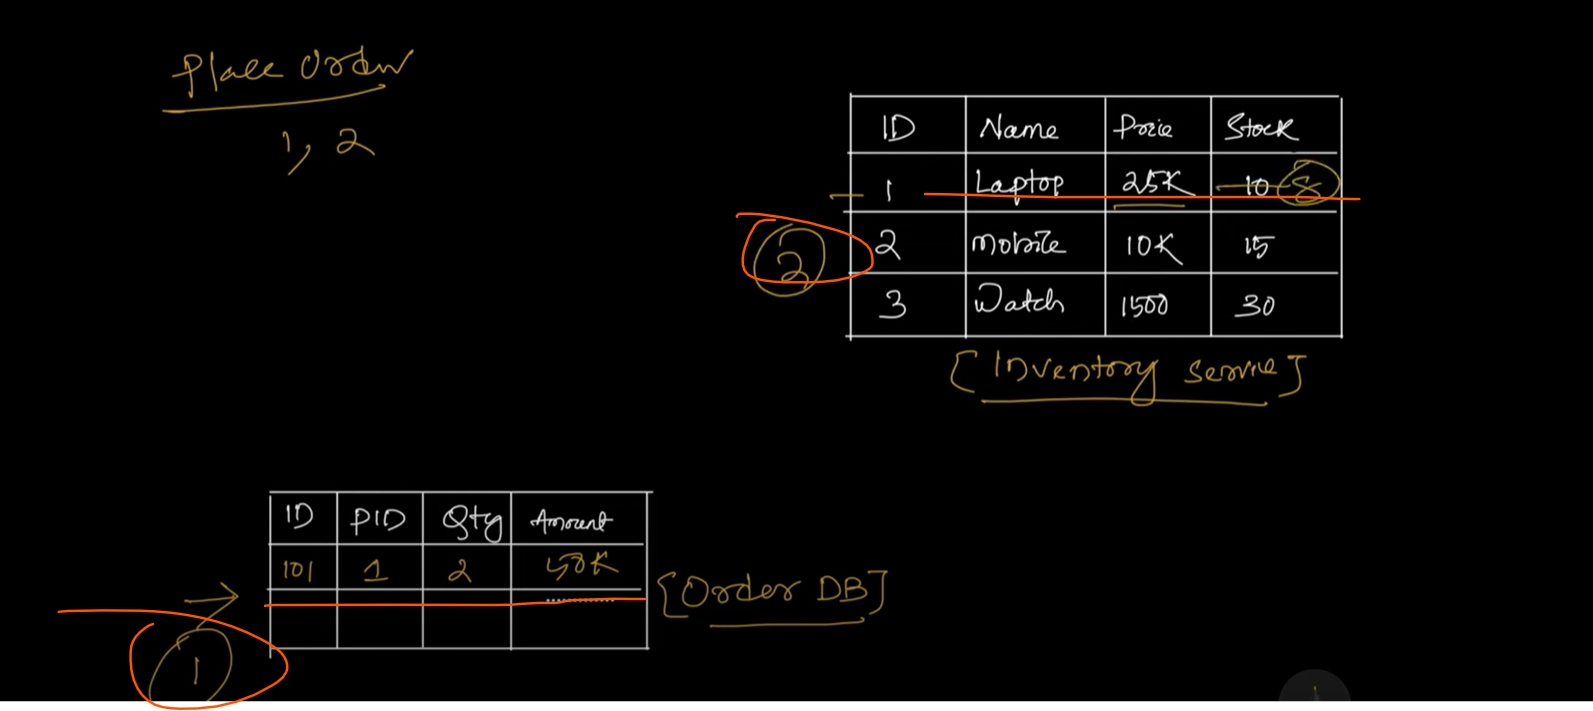 Place Order
1, 2
ID Name Price Stock
1 Laptop 25K 10 8
2 Mobile 10K 15
2
3 Watch 1500 30
[Inventory Service]
ID PID Qty Amount
101 1 2 50K
[Order DB]
1